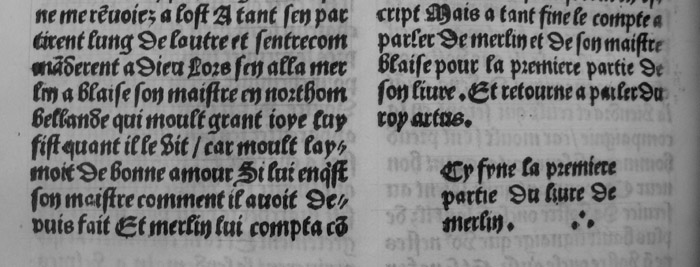 ne me rẽuoiez a lost A tant sen par
tirent lung De lautre et sentrecom
mãderent a Dieu Lors sen alla mer
lin a Blaise son maistre en northom
bellande qui moult grant ioye luy
fist quant il le Vit / car moult lay⸗
moit De bonne amour Si lui enqist
son maistre comment il auoit De⸗
puis fait Et merlin lui compta cõ
cript Mais a tant fine le compte a
parler De merlin et De son maistre
Blaise pour la premiere partie De
son liure . Et retourne a parler Du
roy artus.
Cy fyne la premiere
partie Du liure De
merlin.